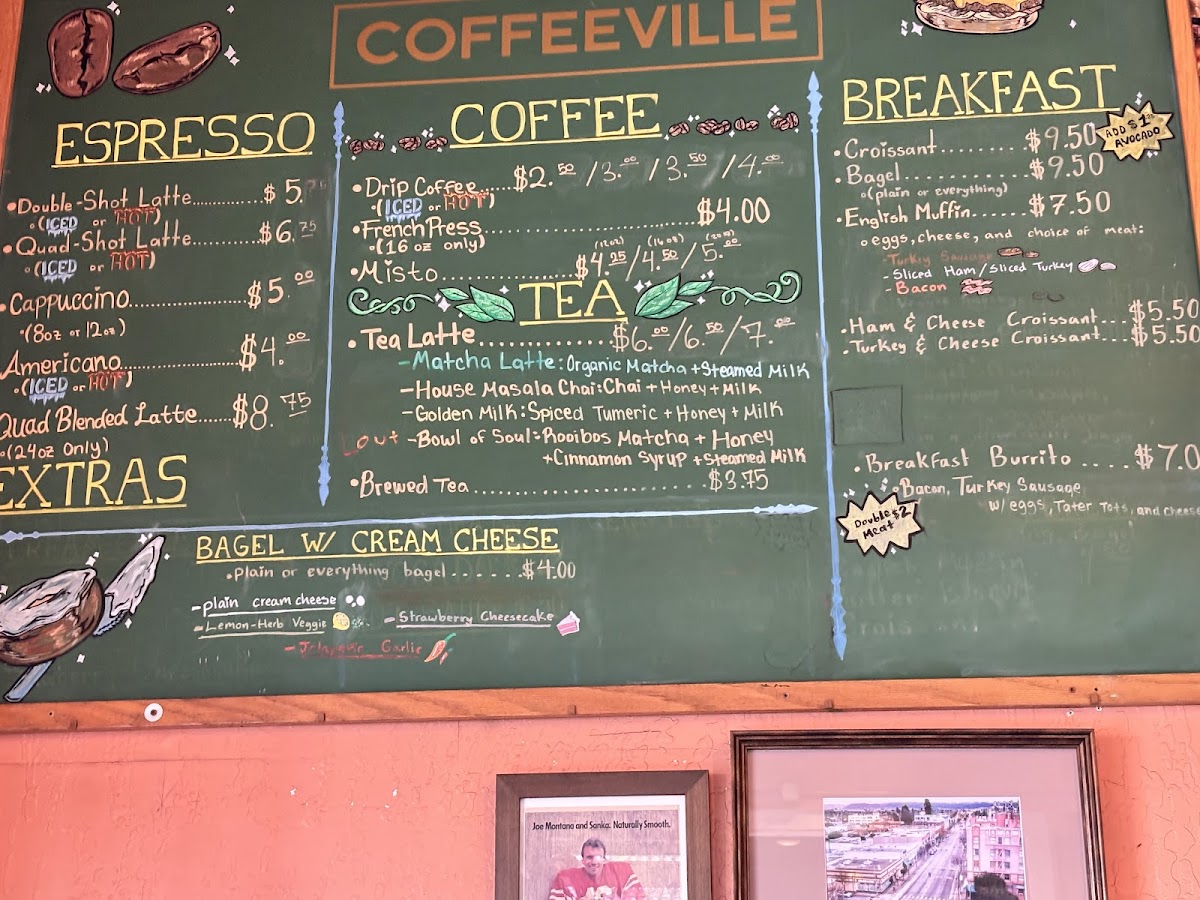 COFFEEVILLE
ESPRESSO
•Double-Shot Latte............$5.75
•(ICED or HOT)
•Quad-Shot Latte............$6.75
•(ICED or HOT)
•Cappuccino............$5.00
•(8oz or 12oz)
Americano............$4.00
•(ICED or HOT)
Quad Blended Latte......$8.75
•(24oz only)
EXTRAS
COFFEE
•Drip Coffee.....$2.50/3.00/3.50/4.00
•(ICED or HOT)
•French Press..............................$4.00
•(16 oz only)
(12oz) (16oz) (20oz)
•Misto..................$4.25/4.50/5.00
TEA
•Tea Latte..................$6.00/6.50/7.00
-Matcha Latte: Organic Matcha + Steamed Milk
-House Masala Chai: Chai + Honey + Milk
-Golden Milk: Spiced Tumeric + Honey + Milk
Out -Bowl of Soul: Rooibos Matcha + Honey
+Cinnamon Syrup + Steamed Milk
•Brewed Tea..............................$3.75
BREAKFAST
•Croissant........$9.50
ADD $1 AVOCADO
•Bagel............$9.50
•(plain or everything)
•English Muffin......$7.50
•eggs, cheese, and choice of meat:
-Turkey Sausage
-Sliced Ham/Sliced Turkey
-Bacon
•Ham & Cheese Croissant...$5.50
•Turkey & Cheese Croissant...$5.50
•Breakfast Burrito ....$7.0
•Bacon, Turkey Sausage
w/ eggs, Tater Tots, and cheese
Double Meat $2
BAGEL W/ CREAM CHEESE
•plain or everything bagel......$4.00
-plain cream cheese
-Lemon-Herb Veggie
-Strawberry Cheesecake
-Jalapeño Garlic
Joe Montana and Sanka. Naturally Smooth.